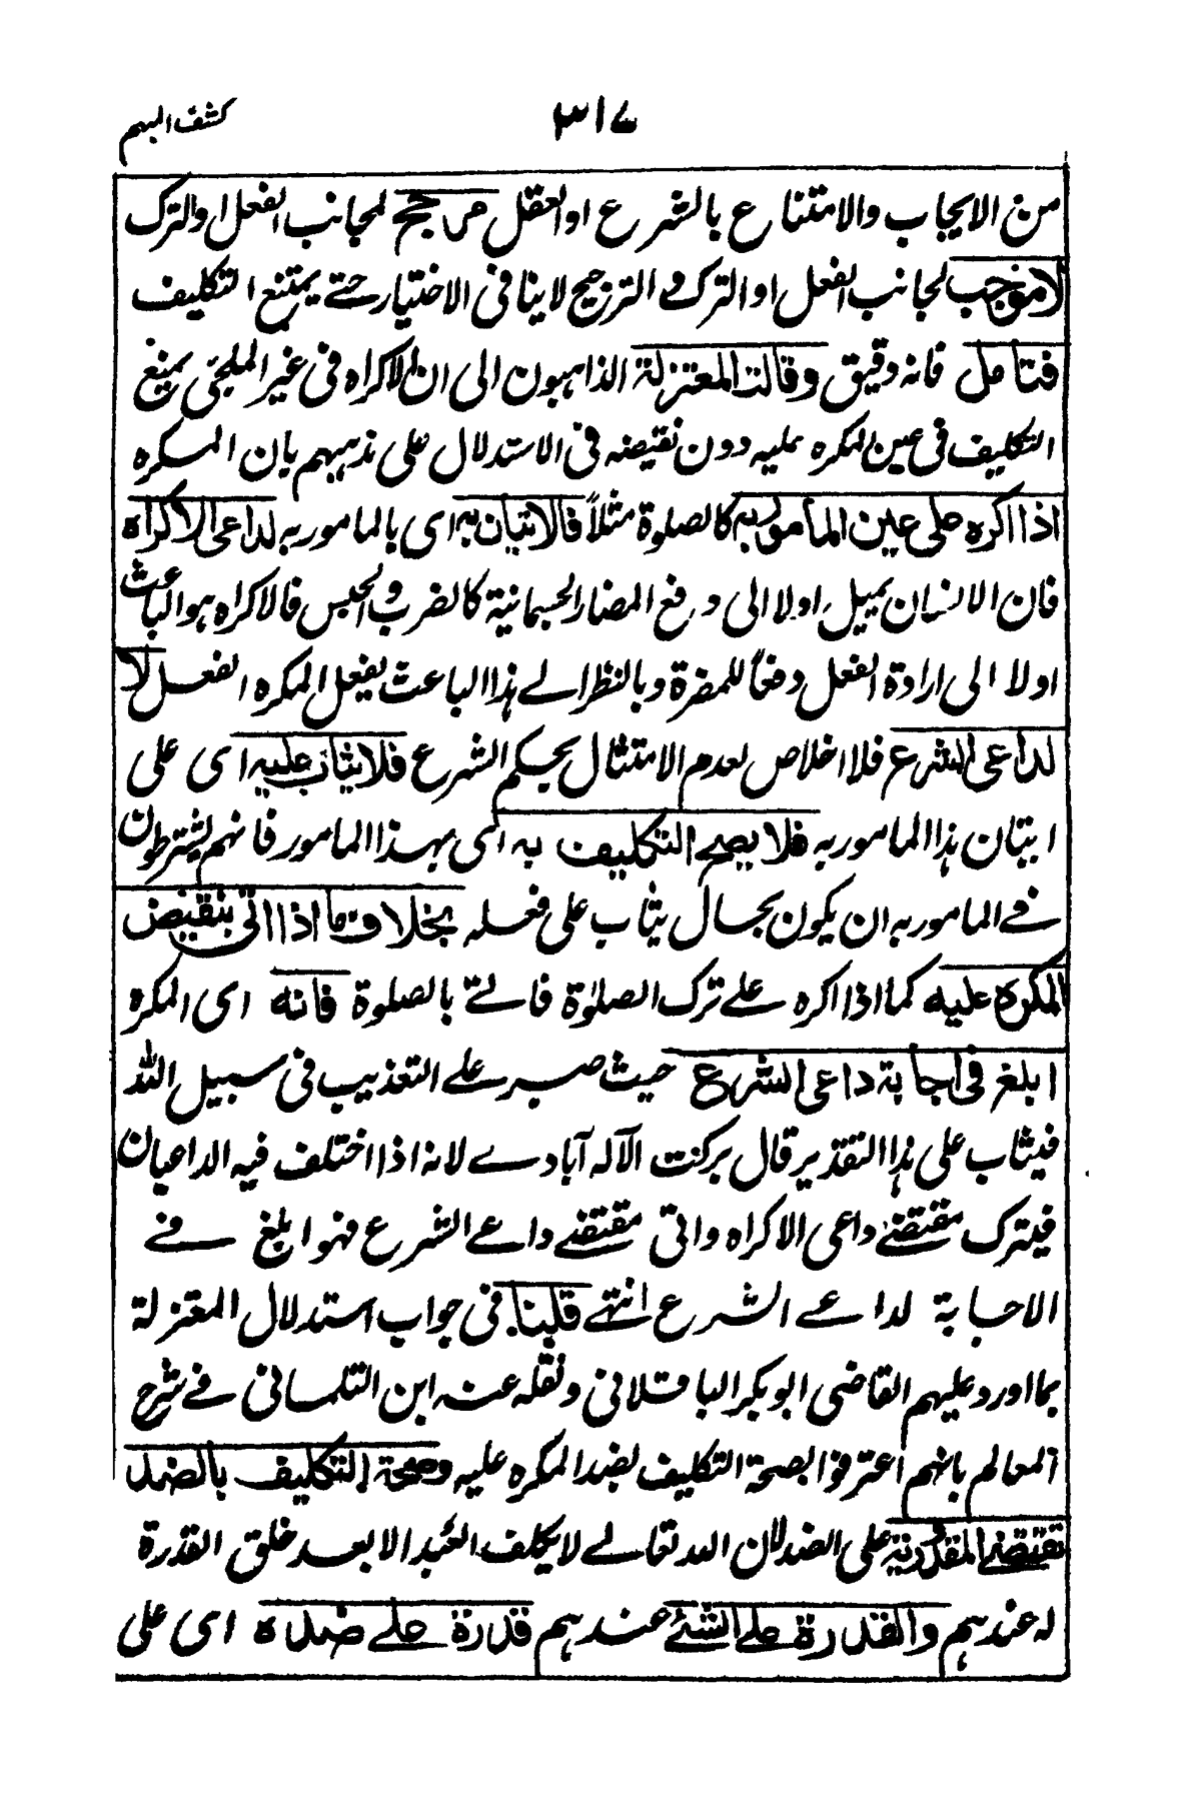 كشف المبهم
٣١٧
من الايجاب والامتناع بالشرع او العقل مرجح لجانب الفعل او الترك
لا موجب لجانب الفعل او الترك والترجيح لاينافى الاختيار حتے يمتنع التكليف
فتامل فانه دقيق وقالت المعتزلة الذاهبون الى ان الاكراه فى غير الملجئ يمنع
التكليف فى عين المكره عليه دون نقيضه فى الاستدلال على مذهبهم بان المكره
اذا اكره على عين المامور به كالصلوة مثلاً فالاتيان به اى بالمامور به لداعى الاكراه
فان الانسان يميل اولا الى دفع المضار الجسمانية كالضرب والحبس فالاكراه هو الباعث
اولا الى ارادة الفعل دفعاً للمضرة وبالنظر الے هذا الباعث يفعل المكره الفعل لا
لداعى الشرع فلا اخلاص لعدم الامتثال بحكم الشرع فلا يثاب عليه اى على
اتيان هذا المامور به فلا يصح التكليف به اى بهذا المامور فانهم يشترطون
فے المامور به ان يكون بحال يثاب على فعله بخلاف ما اذا اتى بنقيض
المكره عليه كما اذا اكره علے ترك الصلوٰة فاتے بالصلوة فانه اى المكره
ابلغ فى اجابة داعى الشرع حيث صبر علے التعذيب فى سبيل الله
فيثاب على هذا التقدير قال بركت الآله آبادے لانه اذا اختلف فيه الداعيان
فيترك مقتضے داعى الاكراه واتى مقتضے داعے الشرع فهو ابلغ فے
الاجابة لداعے الشرع انتهے قلنا فى جواب استدلال المعتزلة
بما اورد عليهم القاضى ابو بكر الباقلانى ونقله عنه ابن التلمسانى فے شرح
المعالم بانهم اعترفوا بصحة التكليف بضد المكره عليه وصحة التكليف بالضد
تقتضے المقدورية على الضد لان الله تعالے لا يكلف العبد الا بعد خلق القدرة
له عندهم والقدرة علے الشئ عندهم قدرة علے ضده اى على